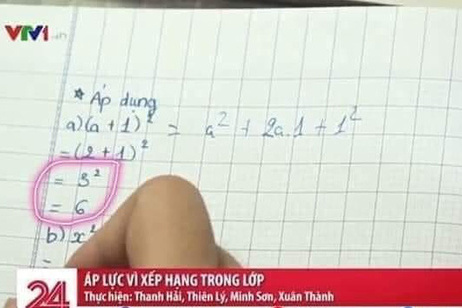 VTV1 HD
* Áp dụng
a) (a + 1)² = a² + 2a.1 + 1²
= (2 + 1)²
= 3²
= 6
b) x²
=
24
ÁP LỰC VÌ XẾP HẠNG TRONG LỚP
Thực hiện: Thanh Hải, Thiên Lý, Minh Sơn, Xuân Thành